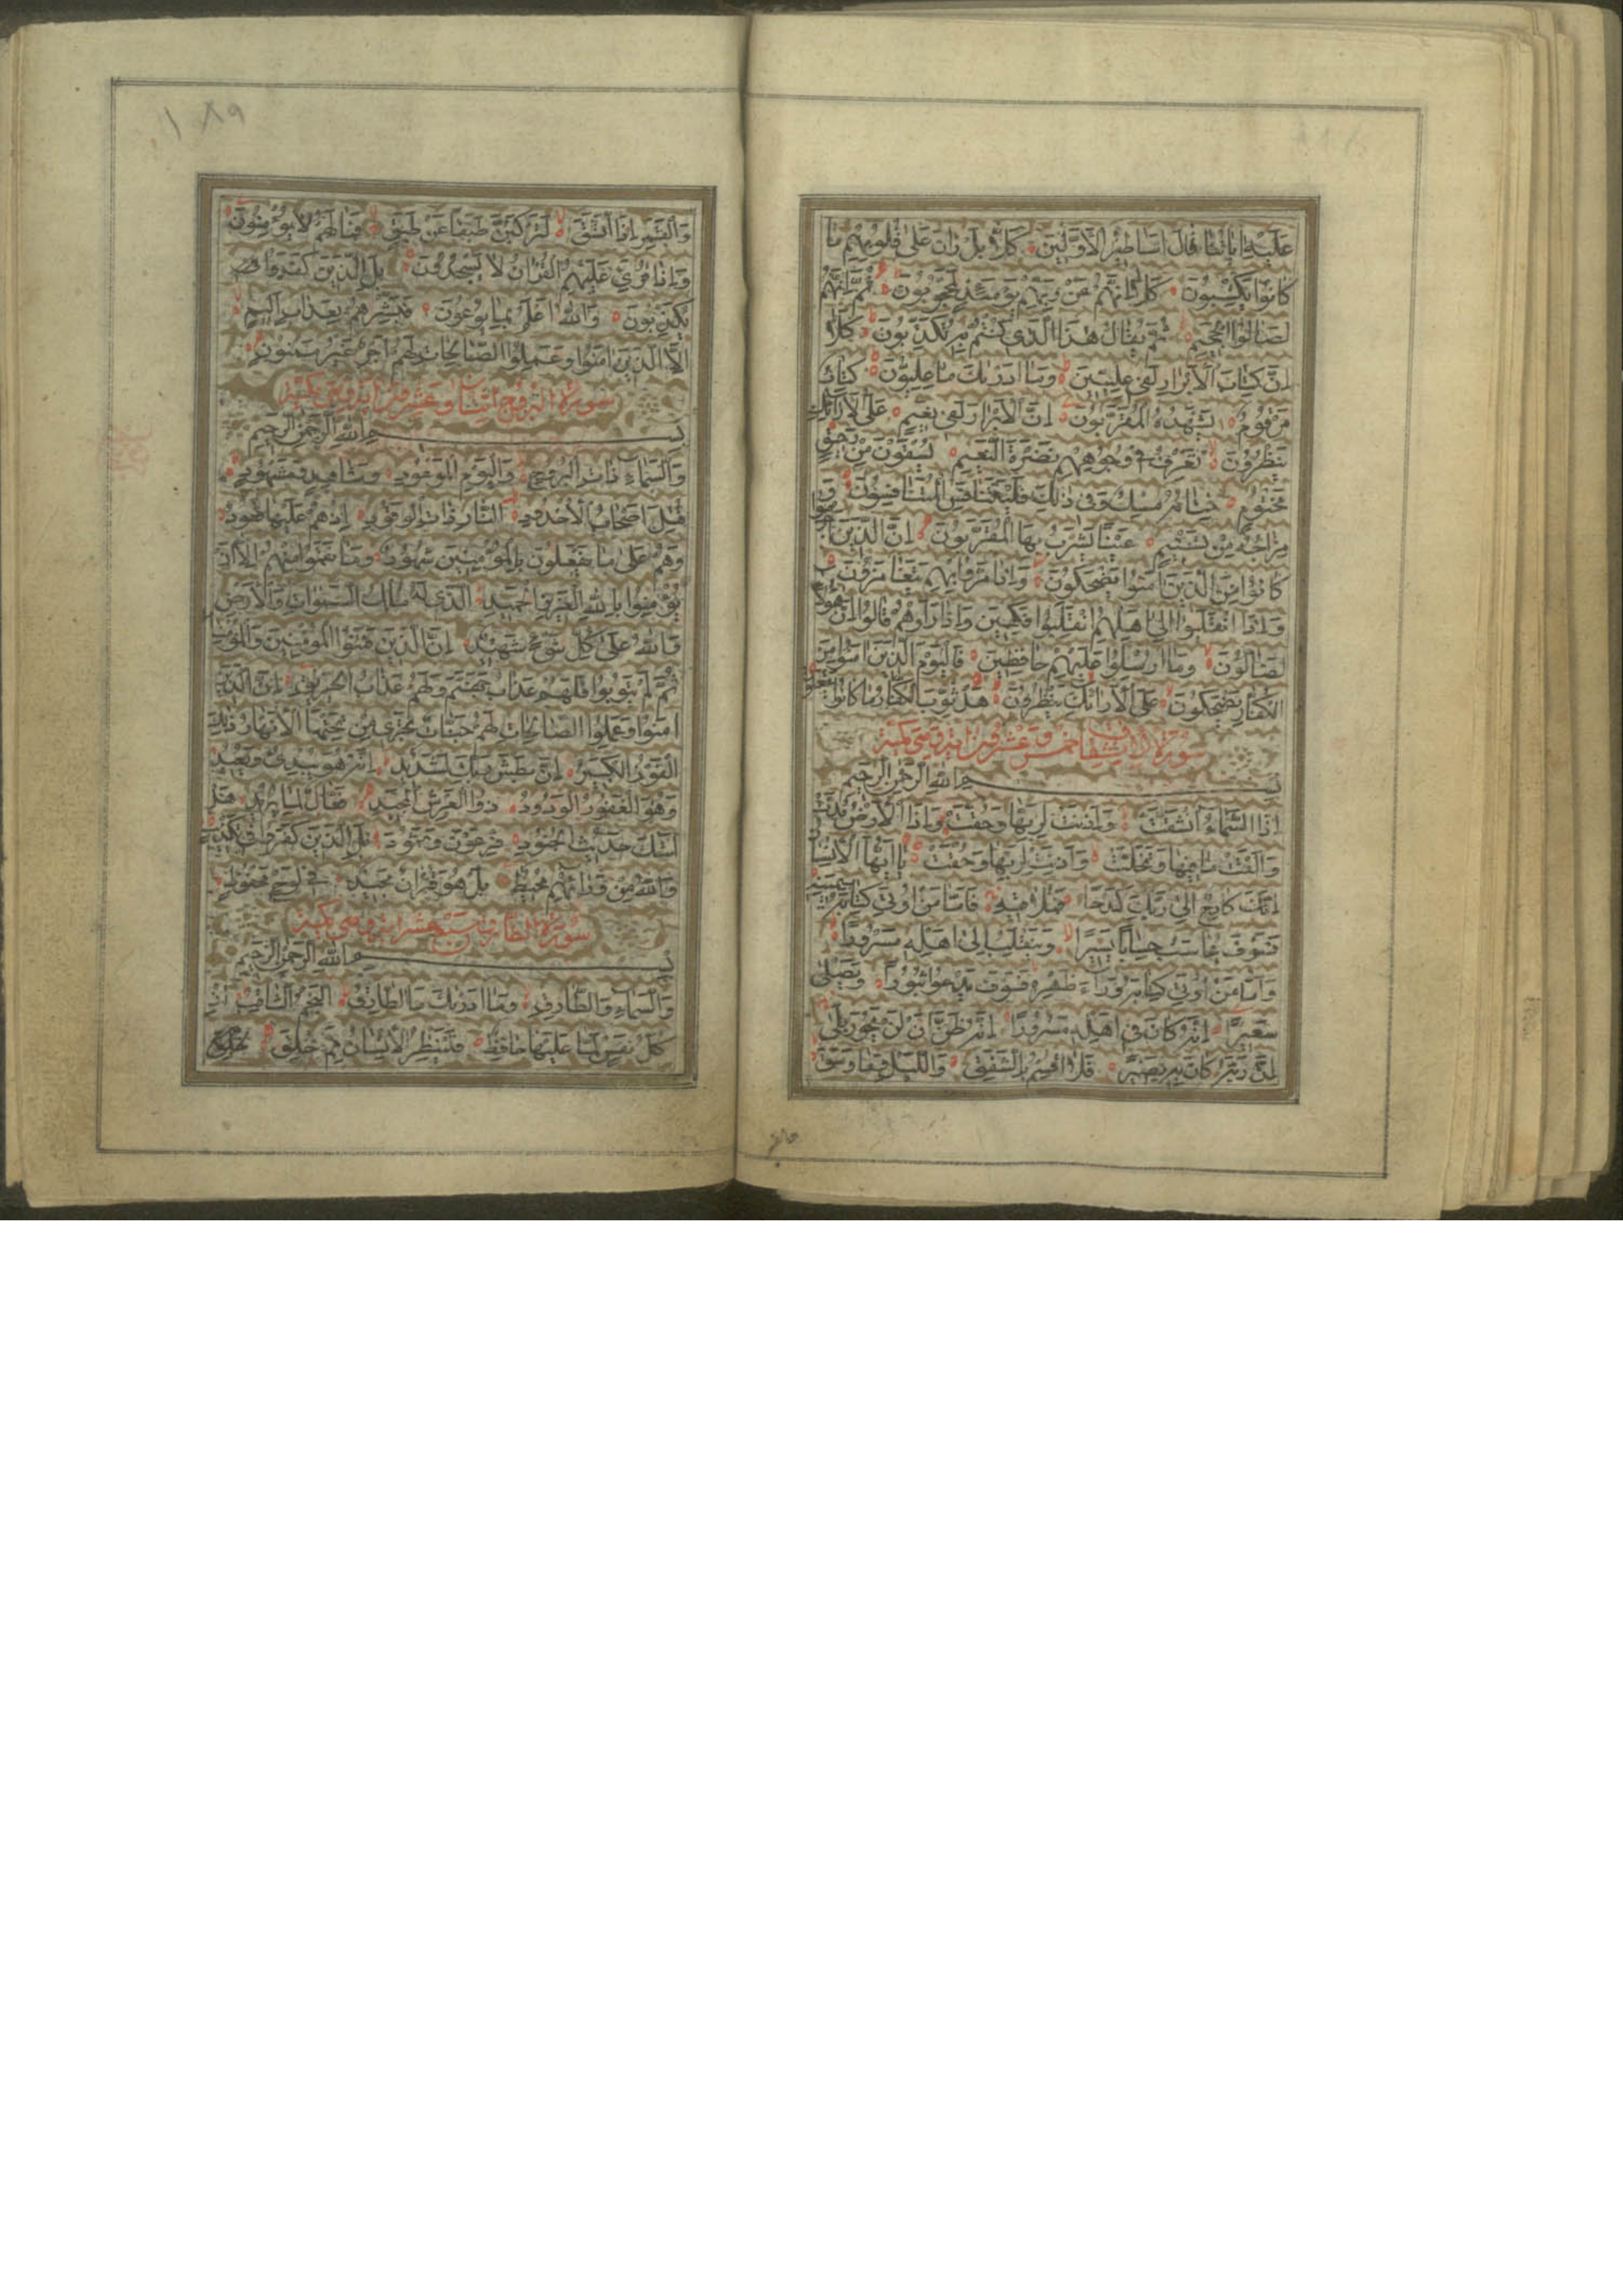 عَلَيْهِ اٰيَاتُنَا قَالَ اَسَاطِيرُ الْاَوَّلِينَ كَلَّا بَلْ رَانَ عَلٰى قُلُوبِهِمْ مَا
كَانُوا يَكْسِبُونَ كَلَّا اِنَّهُمْ عَنْ رَبِّهِمْ يَوْمَئِذٍ لَمَحْجُوبُونَ ثُمَّ اِنَّهُمْ
لَصَالُوا الْجَحِيمِ ثُمَّ يُقَالُ هٰذَا الَّذِي كُنْتُمْ بِهِ تُكَذِّبُونَ كَلَّا
اِنَّ كِتَابَ الْاَبْرَارِ لَفِي عِلِّيِّينَ وَمَا اَدْرٰيكَ مَا عِلِّيُّونَ كِتَابٌ
مَرْقُومٌ يَشْهَدُهُ الْمُقَرَّبُونَ اِنَّ الْاَبْرَارَ لَفِي نَعِيمٍ عَلَى الْاَرَائِكِ
يَنْظُرُونَ تَعْرِفُ فِي وُجُوهِهِمْ نَضْرَةَ النَّعِيمِ يُسْقَوْنَ مِنْ رَحِيقٍ
مَخْتُومٍ خِتَامُهُ مِسْكٌ وَفِي ذٰلِكَ فَلْيَتَنَافَسِ الْمُتَنَافِسُونَ وَ
مِزَاجُهُ مِنْ تَسْنِيمٍ عَيْنًا يَشْرَبُ بِهَا الْمُقَرَّبُونَ اِنَّ الَّذِينَ اَجْرَمُوا
كَانُوا مِنَ الَّذِينَ اٰمَنُوا يَضْحَكُونَ وَاِذَا مَرُّوا بِهِمْ يَتَغَامَزُونَ
وَاِذَا انْقَلَبُوا اِلٰى اَهْلِهِمُ انْقَلَبُوا فَكِهِينَ وَاِذَا رَاَوْهُمْ قَالُوا اِنَّ هٰؤُلَاءِ
لَضَالُّونَ وَمَا اُرْسِلُوا عَلَيْهِمْ حَافِظِينَ فَالْيَوْمَ الَّذِينَ اٰمَنُوا مِنَ
الْكُفَّارِ يَضْحَكُونَ عَلَى الْاَرَائِكِ يَنْظُرُونَ هَلْ ثُوِّبَ الْكُفَّارُ مَا كَانُوا يَفْعَلُونَ
سُورَةُ الْاِنْشِقَاقِ خَمْسٌ وَعِشْرُونَ اٰيَةً وَهِيَ مَكِّيَّةٌ
بِسْمِ اللّٰهِ الرَّحْمٰنِ الرَّحِيمِ
اِذَا السَّمَاءُ انْشَقَّتْ وَاَذِنَتْ لِرَبِّهَا وَحُقَّتْ وَاِذَا الْاَرْضُ مُدَّتْ
وَاَلْقَتْ مَا فِيهَا وَتَخَلَّتْ وَاَذِنَتْ لِرَبِّهَا وَحُقَّتْ يَا اَيُّهَا الْاِنْسَانُ
اِنَّكَ كَادِحٌ اِلٰى رَبِّكَ كَدْحًا فَمُلَاقِيهِ فَاَمَّا مَنْ اُوتِيَ كِتَابَهُ بِيَمِينِهِ
فَسَوْفَ يُحَاسَبُ حِسَابًا يَسِيرًا وَيَنْقَلِبُ اِلٰى اَهْلِهِ مَسْرُورًا
وَاَمَّا مَنْ اُوتِيَ كِتَابَهُ وَرَاءَ ظَهْرِهِ فَسَوْفَ يَدْعُوا ثُبُورًا وَيَصْلٰى
سَعِيرًا اِنَّهُ كَانَ فِي اَهْلِهِ مَسْرُورًا اِنَّهُ ظَنَّ اَنْ لَنْ يَحُورَ بَلٰى
اِنَّ رَبَّهُ كَانَ بِهِ بَصِيرًا فَلَا اُقْسِمُ بِالشَّفَقِ وَالَّيْلِ وَمَا وَسَقَ
١٨٩
وَالْقَمَرِ اِذَا اتَّسَقَ لَتَرْكَبُنَّ طَبَقًا عَنْ طَبَقٍ فَمَا لَهُمْ لَا يُؤْمِنُونَ
وَاِذَا قُرِئَ عَلَيْهِمُ الْقُرْاٰنُ لَا يَسْجُدُونَ بَلِ الَّذِينَ كَفَرُوا
يُكَذِّبُونَ وَاللّٰهُ اَعْلَمُ بِمَا يُوعُونَ فَبَشِّرْهُمْ بِعَذَابٍ اَلِيمٍ
اِلَّا الَّذِينَ اٰمَنُوا وَعَمِلُوا الصَّالِحَاتِ لَهُمْ اَجْرٌ غَيْرُ مَمْنُونٍ
سُورَةُ الْبُرُوجِ اثْنَتَانِ وَعِشْرُونَ اٰيَةً وَهِيَ مَكِّيَّةٌ
بِسْمِ اللّٰهِ الرَّحْمٰنِ الرَّحِيمِ
وَالسَّمَاءِ ذَاتِ الْبُرُوجِ وَالْيَوْمِ الْمَوْعُودِ وَشَاهِدٍ وَمَشْهُودٍ
قُتِلَ اَصْحَابُ الْاُخْدُودِ النَّارِ ذَاتِ الْوَقُودِ اِذْ هُمْ عَلَيْهَا قُعُودٌ
وَهُمْ عَلٰى مَا يَفْعَلُونَ بِالْمُؤْمِنِينَ شُهُودٌ وَمَا نَقَمُوا مِنْهُمْ اِلَّا اَنْ
يُؤْمِنُوا بِاللّٰهِ الْعَزِيزِ الْحَمِيدِ الَّذِي لَهُ مُلْكُ السَّمٰوَاتِ وَالْاَرْضِ
وَاللّٰهُ عَلٰى كُلِّ شَيْءٍ شَهِيدٌ اِنَّ الَّذِينَ فَتَنُوا الْمُؤْمِنِينَ وَالْمُؤْمِنَاتِ
ثُمَّ لَمْ يَتُوبُوا فَلَهُمْ عَذَابُ جَهَنَّمَ وَلَهُمْ عَذَابُ الْحَرِيقِ اِنَّ الَّذِينَ
اٰمَنُوا وَعَمِلُوا الصَّالِحَاتِ لَهُمْ جَنَّاتٌ تَجْرِي مِنْ تَحْتِهَا الْاَنْهَارُ ذٰلِكَ
الْفَوْزُ الْكَبِيرُ اِنَّ بَطْشَ رَبِّكَ لَشَدِيدٌ اِنَّهُ هُوَ يُبْدِئُ وَيُعِيدُ
وَهُوَ الْغَفُورُ الْوَدُودُ ذُوا الْعَرْشِ الْمَجِيدُ فَعَّالٌ لِمَا يُرِيدُ هَلْ
اَتٰيكَ حَدِيثُ الْجُنُودِ فِرْعَوْنَ وَثَمُودَ بَلِ الَّذِينَ كَفَرُوا فِي تَكْذِيبٍ
وَاللّٰهُ مِنْ وَرَائِهِمْ مُحِيطٌ بَلْ هُوَ قُرْاٰنٌ مَجِيدٌ فِي لَوْحٍ مَحْفُوظٍ
سُورَةُ الطَّارِقِ سَبْعَ عَشَرَ اٰيَةً وَهِيَ مَكِّيَّةٌ
بِسْمِ اللّٰهِ الرَّحْمٰنِ الرَّحِيمِ
وَالسَّمَاءِ وَالطَّارِقِ وَمَا اَدْرٰيكَ مَا الطَّارِقُ النَّجْمُ الثَّاقِبُ اِنْ
كُلُّ نَفْسٍ لَمَّا عَلَيْهَا حَافِظٌ فَلْيَنْظُرِ الْاِنْسَانُ مِمَّ خُلِقَ خُلِقَ